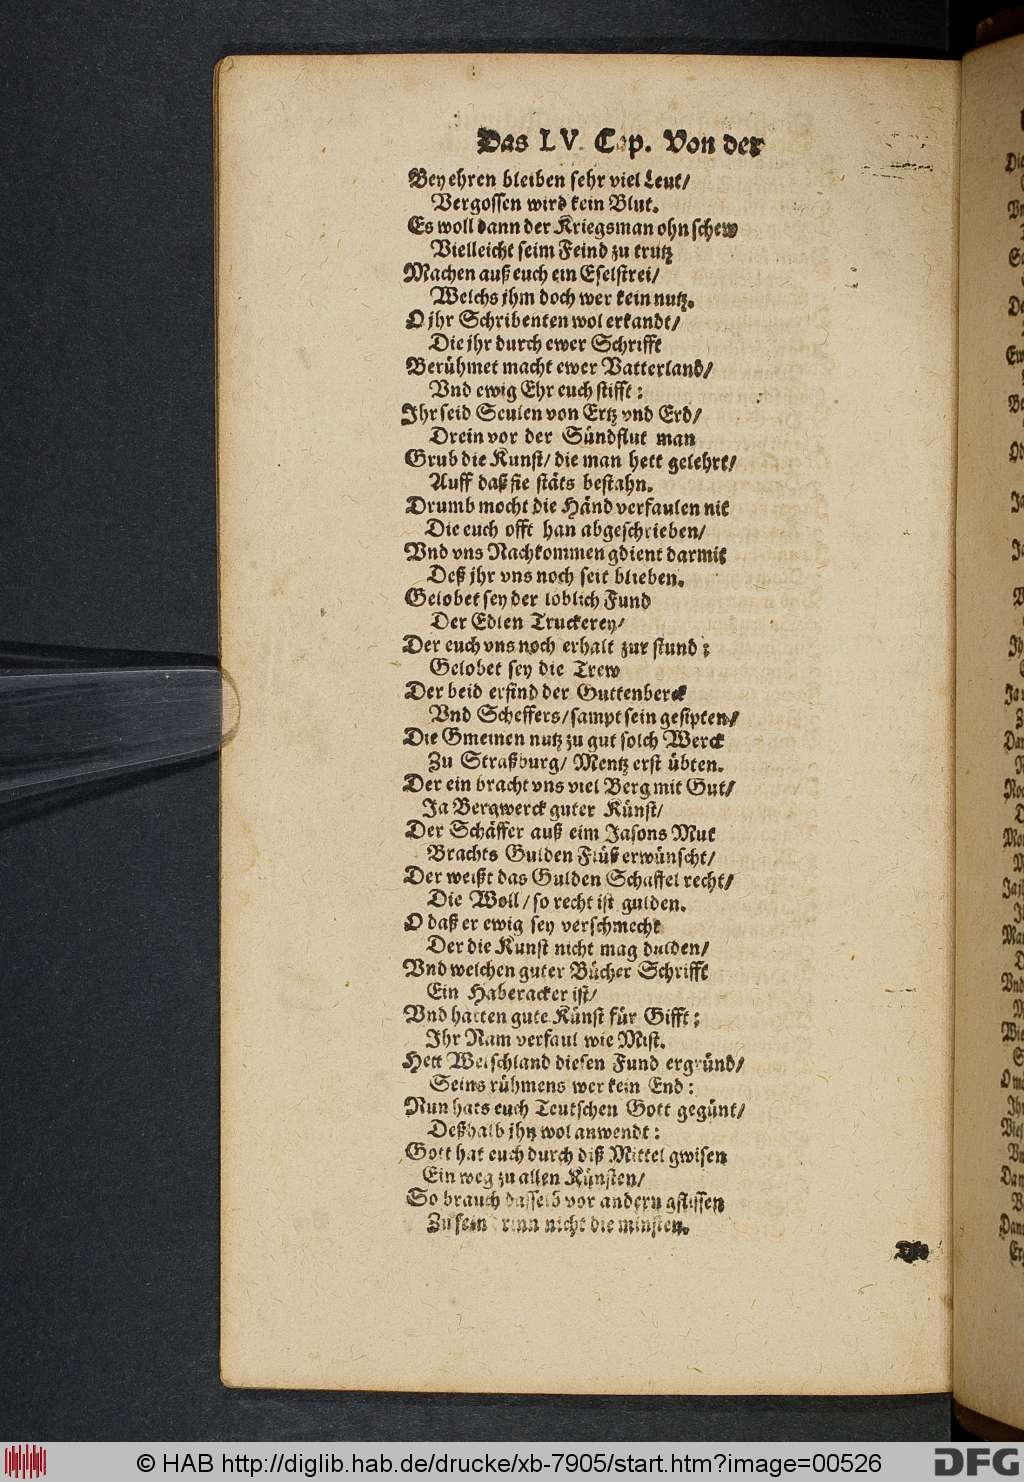 Das LV. Cap. Von der
Bey ehren bleiben sehr viel Leut/
Vergossen wird kein Blut.
Es woll dann der Kriegsman ohn schew
Vielleicht seim Feind zu trutz
Machen auß euch ein Eselstrei/
Welchs jhm doch wer kein nutz.
O jhr Schribenten wol erkandt/
Die jhr durch ewer Schrifft
Berühmet macht ewer Vatterland/
Vnd ewig Ehr euch stifft:
Ihr seid Seulen von Ertz vnd Erd/
Drein vor der Sündflut man
Grub die Kunst/ die man hett gelehrt/
Auff daß sie stäts bestahn.
Drumb mocht die Händ verfaulen nit
Die euch offt han abgeschrieben/
Vnd vns Nachkommen gdient darmit
Deß jhr vns noch seit blieben.
Gelobet sey der loblich Fund
Der Edlen Truckerey/
Der euch vns noch erhalt zur stund:
Gelobet sey die Trew
Der beid erfind der Guttenberck
Vnd Scheffers/ sampt sein gesipten/
Die Gmeinen nutz zu gut solch Werck
Zu Straßburg/ Mentz erst übten.
Der ein bracht vns viel Berg mit Gut/
Ja Bergwerck guter Künst/
Der Schäffer auß eim Jasons Mut
Brachts Gulden Flüß erwünscht/
Der weißt das Gulden Schaffel recht/
Die Woll/ so recht ist gulden.
O daß er ewig sey verschmecht
Der die Kunst nicht mag dulden/
Vnd welchen guter Bücher Schrifft
Ein Haberacker ist/
Vnd hatten gute Künst für Gifft:
Ihr Nam verfaul wie Mist.
Hett Welschland diesen Fund ergründ/
Seins rühmens wer kein End:
Nun hats euch Teutschen Gott gegünt/
Deßhalb jhn wol anwendt:
Gott hat euch durch diß Mittel gwisen
Ein weg zu allen Künsten/
So brauch dasselb vor andern gflissen
Zu sein nicht die minsten.
© HAB http://diglib.hab.de/drucke/xb-7905/start.htm?image=00526
DFG